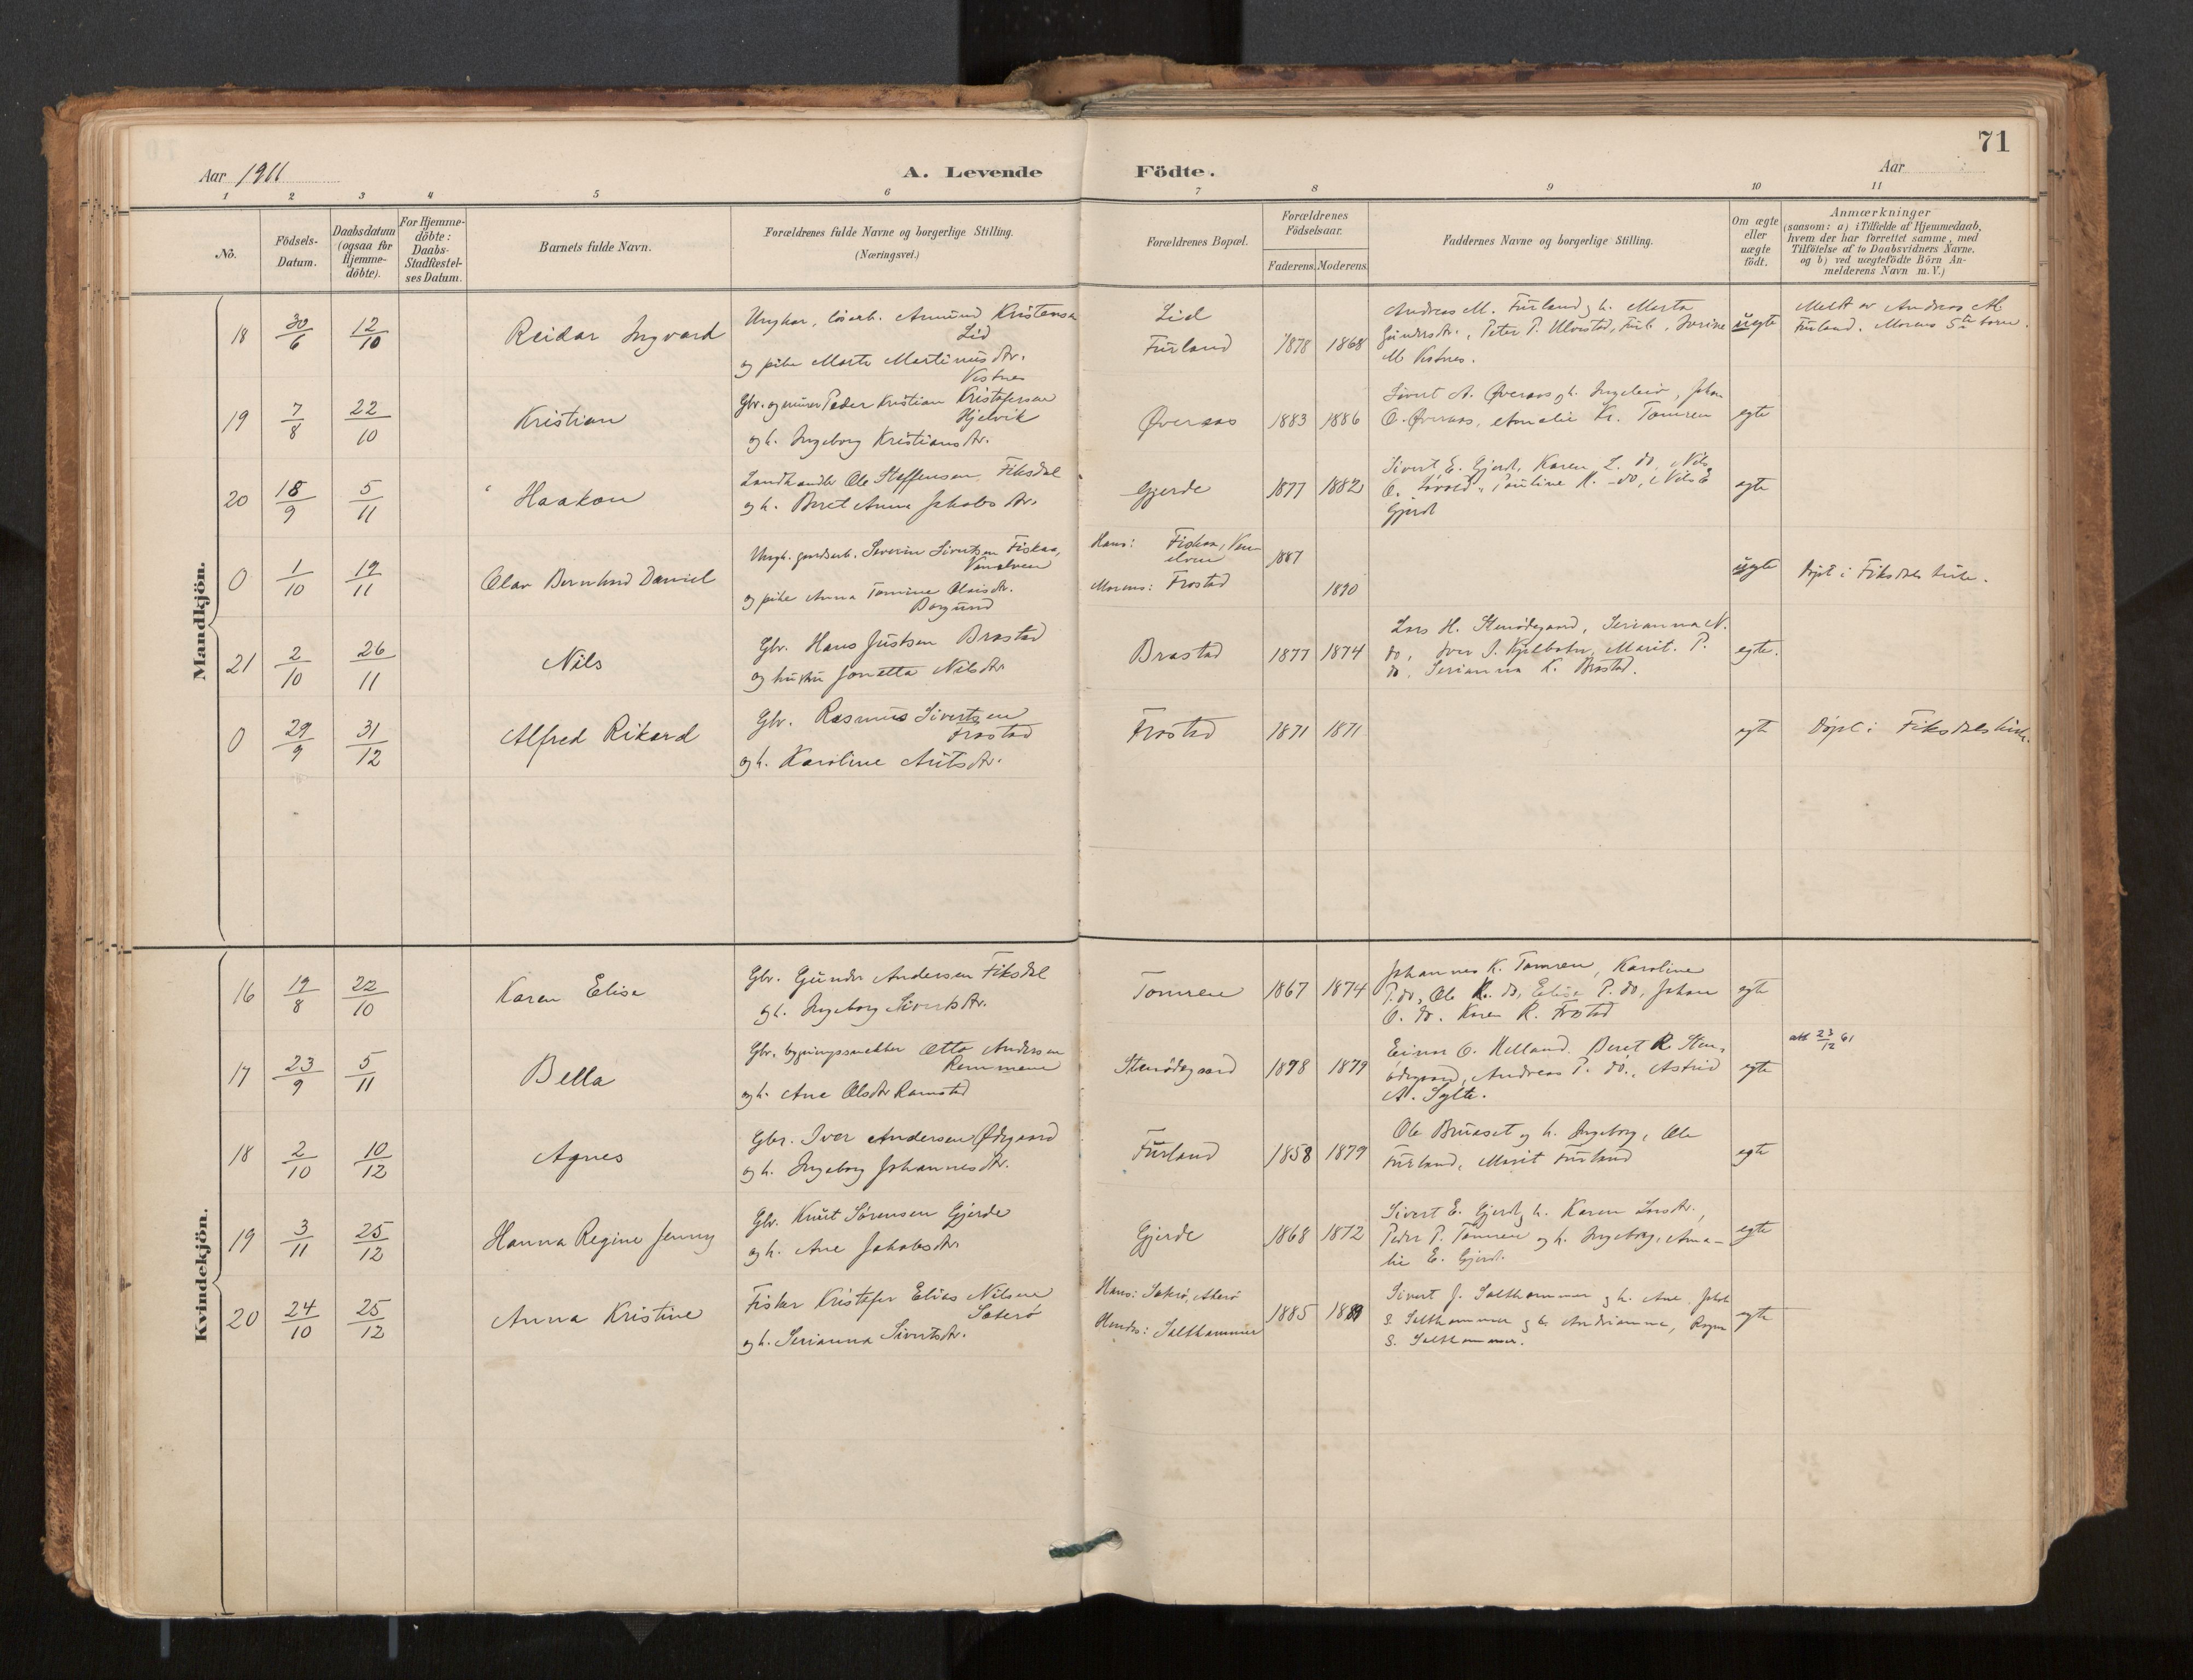 71
Aar 1911
A. Levende Födte.
Aar
1 2 3 4 5 6 7 8 9 10 11
No.
Födsels-Datum.
Daabsdatum (ogsaa for Hjemme-döbte).
For Hjemme-döbte: Daabs-Stadfæstel-ses Datum.
Barnets fulde Navn.
Forældrenes fulde Navne og borgerlige Stilling.
(Næringsvei.)
Forældrenes Bopæl.
Forældrenes Födselsaar.
Faderens. Moderens.
Faddernes Navne og borgerlige Stilling.
Om ægte eller uægte födt.
Anmærkninger
(saasom: a) i Tilfælde af Hjemmedaab,
hvem der har forrettet samme, med
Tilföielse af to Daabsvidners Navne.
og b) ved uægtefödte Börn An-
melderens Navn m.V.)
Mandkjön.
18 30/6 12/10 Reidar Ingvard
Ungkar, lösarb. Amund Kristensen
Lid
og pike Marta Martinusdtr.
Vestnes
Lid
Furland 1878 1868
Andreas M. Furland og h. Marta
Gundersdtr., Peter P. Ulvestad, Furl.,
M. Vestnes.
uegte
Meldt av Andreas M.
Furland. Morens 5te barn.
19 7/8 22/10 Kristian
Gbr. og murer Peder Kristian Kristofersen
Hjelvik
og h. Ingeborg Kristiansdtr.
Øveraas 1883 1886
Sivert A. Øveraas og h. Ingeleiv, Johan
O. Øveraas, Amalie Kr. Tomren
egte
20 18/9 5/11 Haakon
Landhandler Ole Steffensen Fiksdal
og h. Beret Anna Jakobsdtr.
Gjerde 1877 1882
Sivert E. Gjerde, Karen L. do, Nils
O. Pauline K. do, Nils E
Gjerde
egte
0 1/10 19/11 Olav Bernhard Daniel
Ungk. gaardsarb. Severin Sivertsen Fiskaa,
Vanelven
og pike Anna Tomine Olaisdtr.
Borgund
Hans: Fiskaa, Van-
elven 1887
Morens: Frostad 1890
uegte
Døpt i Fiksdals kirke.
21 2/10 26/11 Nils
Gbr. Hans Justsen Brastad
og hustru Jonetta Nilsdtr.
Brastad 1877 1874
Lars H. Stenødegaard, Serianna N.
do, Iver J. Kjelbotn, Marit P.
do, Serianna K. Brastad.
egte.
0 29/9 31/12 Alfred Rikard
Gbr. Rasmus Sivertsen
Frostad
og h. Karoline
Frostad 1871 1871
egte
Døpt i Fiksdals kirke.
Kvindekjön.
16 19/8 22/10 Karen Elise
Gbr. Gunder Andersen Fiksdal
og h. Ingeborg Sivertsdtr.
Tomren 1867 1874
Johannes K. Tomren, Karoline
P. do, Ole K. do, Elise P. do, Johan
O. do. Karen R. Frostad
egte
17 23/9 5/11 Bella
Gbr., bygningssnekker Otto Andersen
Remmem
og h. Ane Olsdtr Ramstad
Stenødegaard 1878 1879
Einar O. Helland, Beret R. Sten-
ødegaard, Andreas P. do., Astrid
A. Sylte.
egte
att 23/12 61
18 2/10 10/12 Agnes
Gbr. Iver Andersen Ødegaard
og h. Ingeborg Johannesdtr.
Furland 1858 1879
Ole Bruaset og h. Ingeborg, Ole
Furland, Marit Furland
egte
19 3/11 25/12 Hanna Regine Jenny
Gbr. Knut Sørensen Gjerde
og h. Ane Jakobsdtr.
Gjerde 1868 1872
Sivert E. Gjerde og h. Karen Larsdtr.,
Peder P. Tomren og h. Ingeborg, Ama-
lie E. Gjerde.
egte
20 24/10 25/12 Anna Kristine
Fisker Kristofer Elias Nilsen
Sæterø
og h. Serianna Sivertsdtr.
Hans: Sæterø, Akerø
Hendes: Salthammer 1885 1889
Sivert J. Salthammer og h. Ane, Jakob
S. Salthammer og h. Andrianna, Ragna
S. Salthammer.
egte